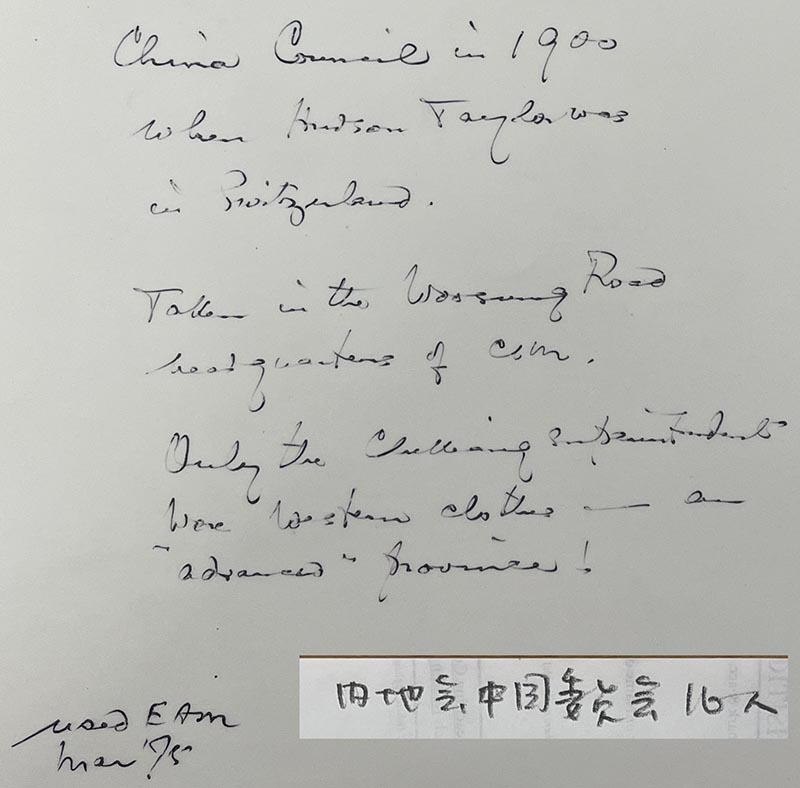 China Council in 1900
when Hudson Taylor was
in Switzerland.
Taken in the Woosung Road
headquarters of CIM.
Only the Chekiang superintendents
wore Western clothes — an
"advanced" province!
内地会中国委员会 16人
used EAM
Mar '75